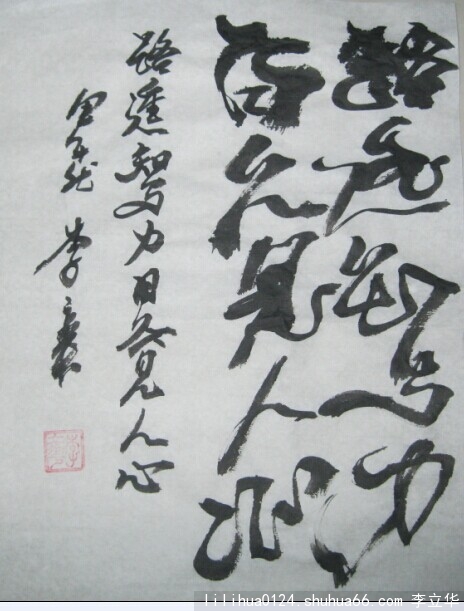 路遥知马力
日久见人心
路遥知马力日久见人心
李
lilihua0124.shuhua66.com 李立华